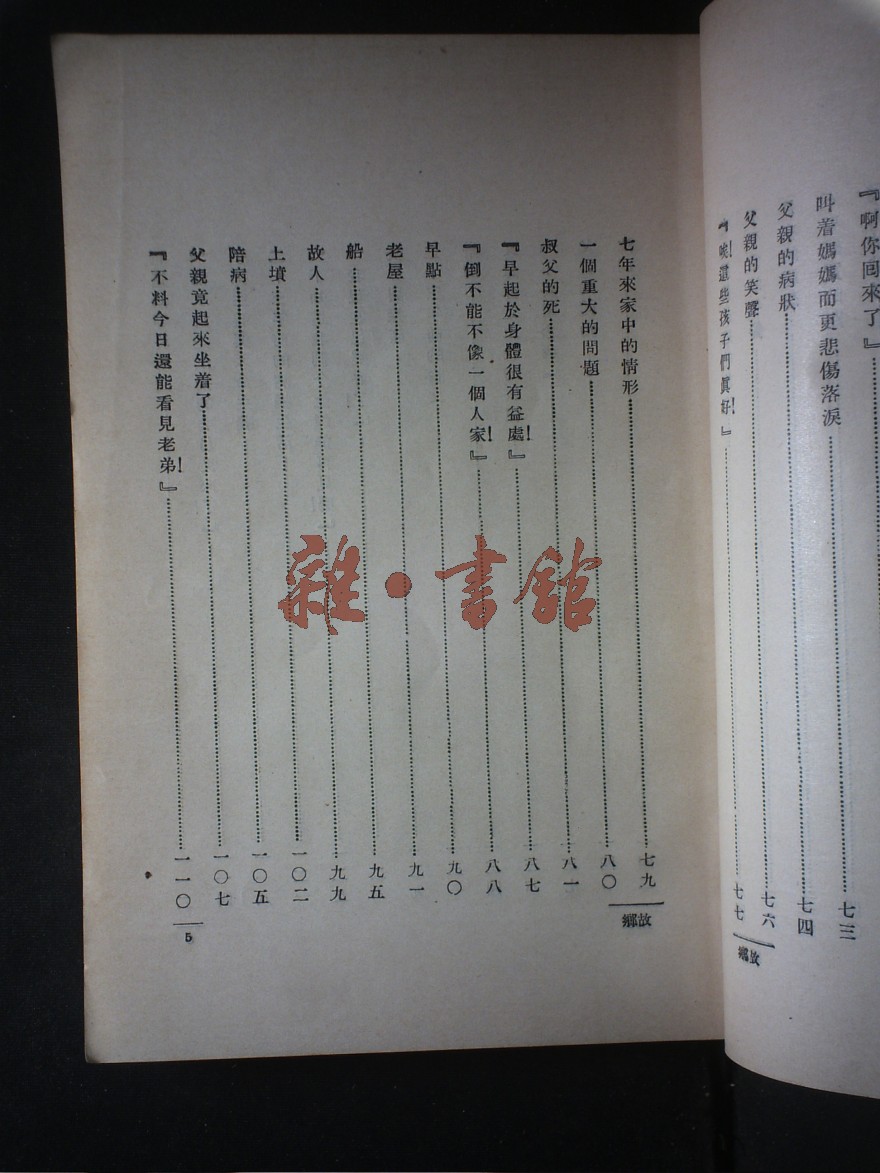 『啊你回來了』
叫着媽媽而更悲傷落淚……七三
父親的病狀……七四
父親的笑聲……七六
『唉!這些孩子們眞好!』……七七
故鄉
七年來家中的情形……七九
一個重大的問題……八〇
叔父的死……八一
『早起於身體很有益處!』……八七
『倒不能不像一個人家!』……八八
早點……九〇
老屋……九一
船……九五
故人……九九
上墳……一〇二
陪病……一〇五
父親竟起來坐着了……一〇七
『不料今日還能看見老弟!』……一一〇
故鄉
5
雜·書館